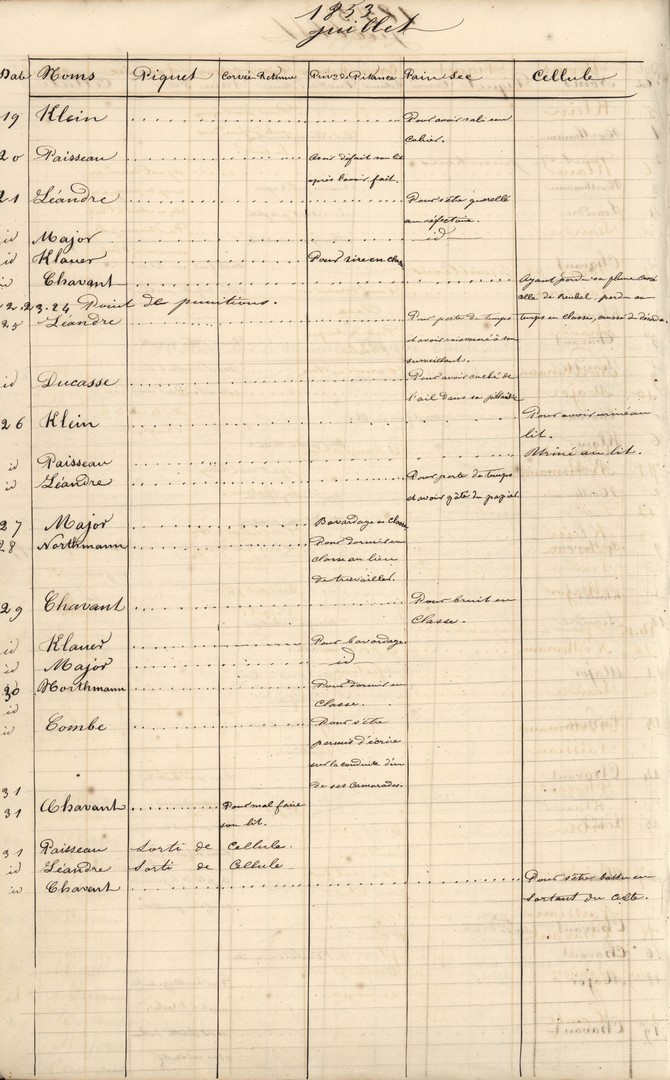 1853
juillet
Date Noms Piquet Corvée Retenue Privon de Pitance Pain sec Cellule
19 Klein Pour avoir sali son
cahier.
20 Paisseau Avoir défait son lit
après l'avoir fait.
21 Léandre Pour s'être querellé
au réfectoire.
id Major id
id Klauer Pour rire en classe
id Chavant Ayant perdu sa plume cassé
celle de Reubel, perdu son
22.23.24 Point de punitions.
temps en classe, cassé du
25 Léandre Pour perte de temps
et avoir raisonné à son
surveillant.
id Ducasse Pour avoir caché de
l'ail dans sa
26 Klein Pour avoir uriné au
lit.
id Paisseau Uriné au lit.
id Léandre Pour perte de temps
et avoir gâté du papier.
27 Major Bavardage en classe
28 Northmann Pour dormir en
classe au lieu
de travailler.
29 Chavant Pour bruit en
Classe.
id Klauer Pour bavardage.
id Major id
30 Northmann Pour dormir en
id Classe.
id Combe Pour s'être
permis d'écrire
sur la conduite d'un
de ses camarades.
31
31 Chavant Pour mal faire
son lit.
31 Paisseau Sorti de Cellule.
id Léandre Sorti de Cellule
id Chavant Pour s'être battu en
sortant du